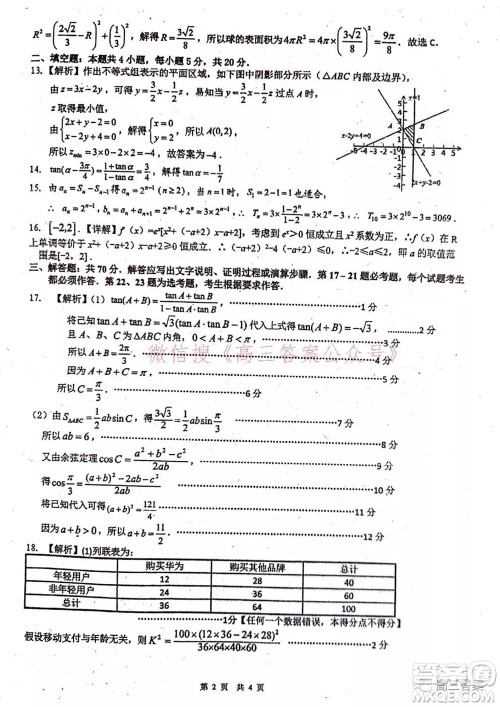 R²=(2√2/3−R)²+(√2/3)², 解得 R=3√2/8, 所以球的表面积为 4πR²=4π×(3√2/8)²=9π/8. 故选 C.
二、填空题：本题共 4 小题，每小题 5 分，共 20 分.
13.【解析】作出不等式组表示的平面区域，如下图中阴影部分所示（△ABC 内部及边界），
由 z=3x-2y, 可得 y=3/2x-z/2, 所以当 y=3/2x-z/2 过点 A 时，
z 取得最小值，
由{2x+y-2=0 x-2y+4=0 解得{x=0 y=2, 所以 A(0,2),
所以 zmin=3x-2y=-4, 故答案为-4.
x-2y+4=0
2x+y-2=0
14. tan(α-3π/4)=(tanα+1)/(1-tanα), 解得 tanα=
15. 由 aₙ=Sₙ-Sₙ₋₁ 得 aₙ=2ⁿ⁻¹ (n≥2), 当 n=1 时也适合,
16. [-2,2].【详解】f′(x)=eˣ[x²+(-a+2)x-a+2]≥0 恒成立. ∵f（x）在 R
上单调等价于 x²+（-a+2）x-a+2≥0 恒成立，∴（-a+2）²-4（-a+2）≤0，∴-2≤a≤2，即 a 的取值范
围是[-2，2].
三、解答题：共 70 分．解答应写出文字说明、证明过程或演算步骤．第 17－21 题必考题，每个试题考生
都必须作答．第 22、23 题为选考题，考生根据要求作答．
17. 【解析】(1) tan(A+B)=(tan A+tan B)/(1-tan A·tan B)………1 分
将已知 tan A+tan B=√3(tan A·tan B-1)代入上式得 tan(A+B)=-√3………3 分
且 A、B、C 为△ABC 内角，所以 0<A+B<π, 所以 A+B=2π/3………4 分
因为 A+B+C=π………5 分
所以 C=π/3.………6 分
微信搜《高三答案公众号》
(2) 由 S△ABC=1/2absinC, 得 3√3/2=1/2absinπ/3………7 分
所以 ab=6,………8 分
又由余弦定理 cosC=(a²+b²-c²)/2ab………9 分
得 cosπ/3=((a+b)²-2ab-c²)/2ab………10 分
将已知代入得 (a+b)²=121/4………11 分
因为 a+b>0, 所以 a+b=11/2.………12 分
18.【解析】(1)列联表为：
购买华为 购买其他品牌 总计
年轻用户 12 28 40
非年轻用户 24 36 60
总计 36 64 100
………1分【任何一个数据错误，本得分点不得分】
假设移动支付与年龄无关, 则 K²=100×(12×36-24×28)²/36×64×40×60
第 2 页 共 4 页
高三答案